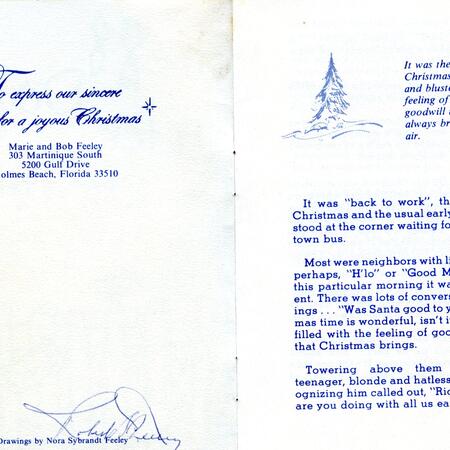 o express our sincere
for a joyous Christmas
Marie and Bob Feeley
303 Martinique South
5200 Gulf Drive
olmes Beach, Florida 33510
Robert Feeley
Drawings by Nora Sybrandt Feeley
It was the
Christmas
and bluste
feeling of
goodwill
always br
air.
It was "back to work", th
Christmas and the usual early
stood at the corner waiting fo
town bus.
Most were neighbors with li
perhaps, "H'lo" or "Good M
this particular morning it wa
ent. There was lots of convers
ings . . . "Was Santa good to y
mas time is wonderful, isn't i
filled with the feeling of goo
that Christmas brings.
Towering above them
teenager, blonde and hatless
ognizing him called out, "Ric
are you doing with all us ea